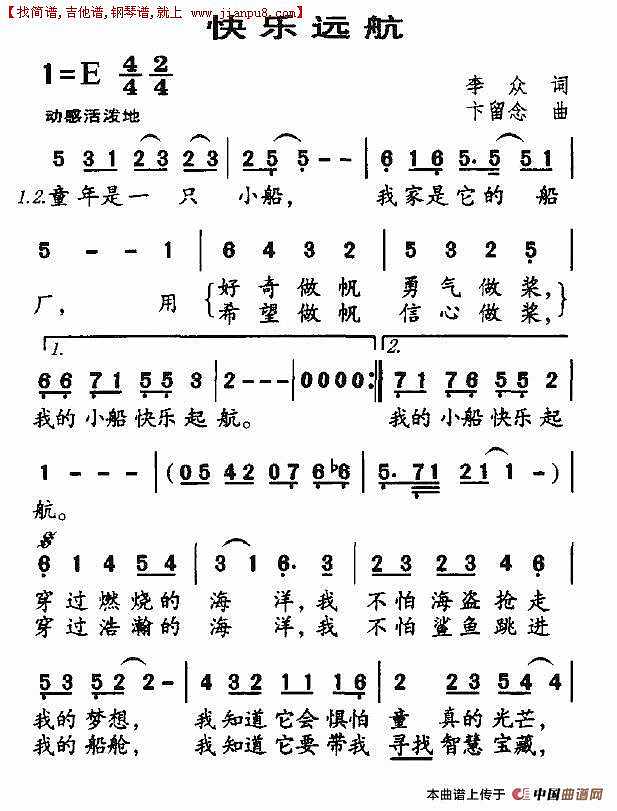 【找简谱,吉他谱,钢琴谱,就上 www.jianpu8.com】
快乐远航
1=E 4/4 2/4
李众 词
动感活泼地
卞留念 曲
5 31 23 23 | 25 5 - - | 6 16 5.5 51 |
1.2.童年是一只小船，我家是它的船
5 - - 1 | 6 4 3 2 | 5 3 2 5 |
厂，用{好奇做帆 勇气做桨，}
{希望做帆 信心做桨，}
1. 2.
66 71 55 3 | 2 - - - | 0000 :| 71 76 55 2 |
我的小船快乐起航。 我的小船快乐起
1 - - - | (05 42 07 6♭6 | 5. 71 21 1 -) |
航。
6 1 4 54 | 3 1 6. 3 | 23 23 4 6 |
穿过燃烧的海洋，我不怕海盗抢走
穿过浩瀚的海洋，我不怕鲨鱼跳进
53 52 2 - | 43 32 11 16 | 2 254 52 2 |
我的梦想，我知道它会惧怕童真的光芒，
我的船舱，我知道它要带我寻找智慧宝藏，
本曲谱上传于 中国曲谱网